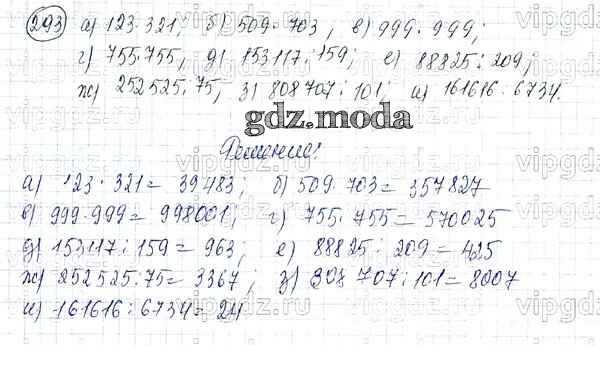 293 а) 123·321; б) 509·703; в) 999·999;
г) 755·755, д) 153117:159; е) 88825:209;
ж) 252525:75, з) 808707:101; и) 161616:6734.
gdz.moda
Решение:
а) 123·321=39483; б) 509·703=357827
в) 999·999=998001; г) 755·755=570025
д) 153117:159=963; е) 88825:209=425
ж) 252525:75=3367; з) 808707:101=8007
и) 161616:6734=24